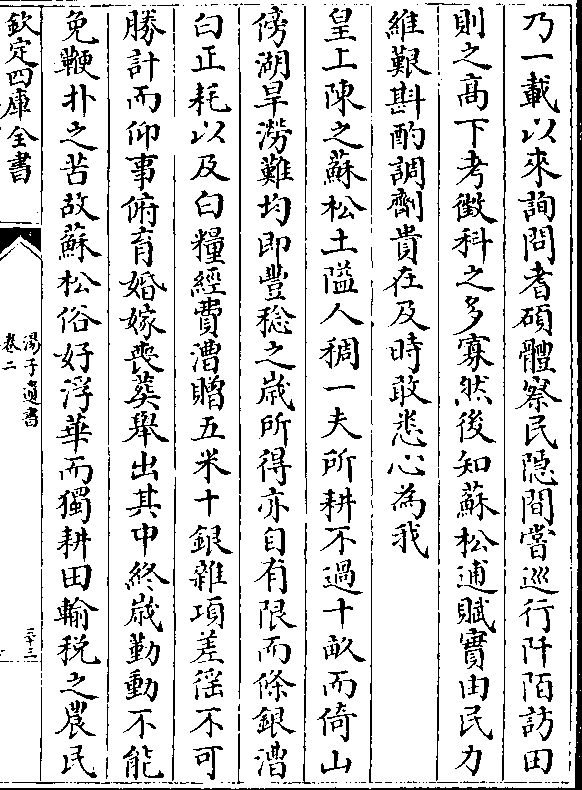 乃一載以來詢問耆碩體察民隱間嘗巡行阡陌訪田
則之髙下考徵科之多寡然後知蘇松逋賦實由民力
維艱斟酌調劑貴在及時敢悉心為我
皇上陳之蘇松土隘人稠一夫所耕不過十畝而倚山
傍湖旱澇難均即豐稔之嵗所得亦自有限而條銀漕
白正耗以及白糧經費漕贈五米十銀雜項差徭不可
勝計而仰事俯育婚嫁喪葬舉出其中終嵗勤動不能
免鞭朴之苦故蘇松俗好浮華而獨耕田輸稅之農民
欽定四庫全書
湯子遺書
卷二
三十三